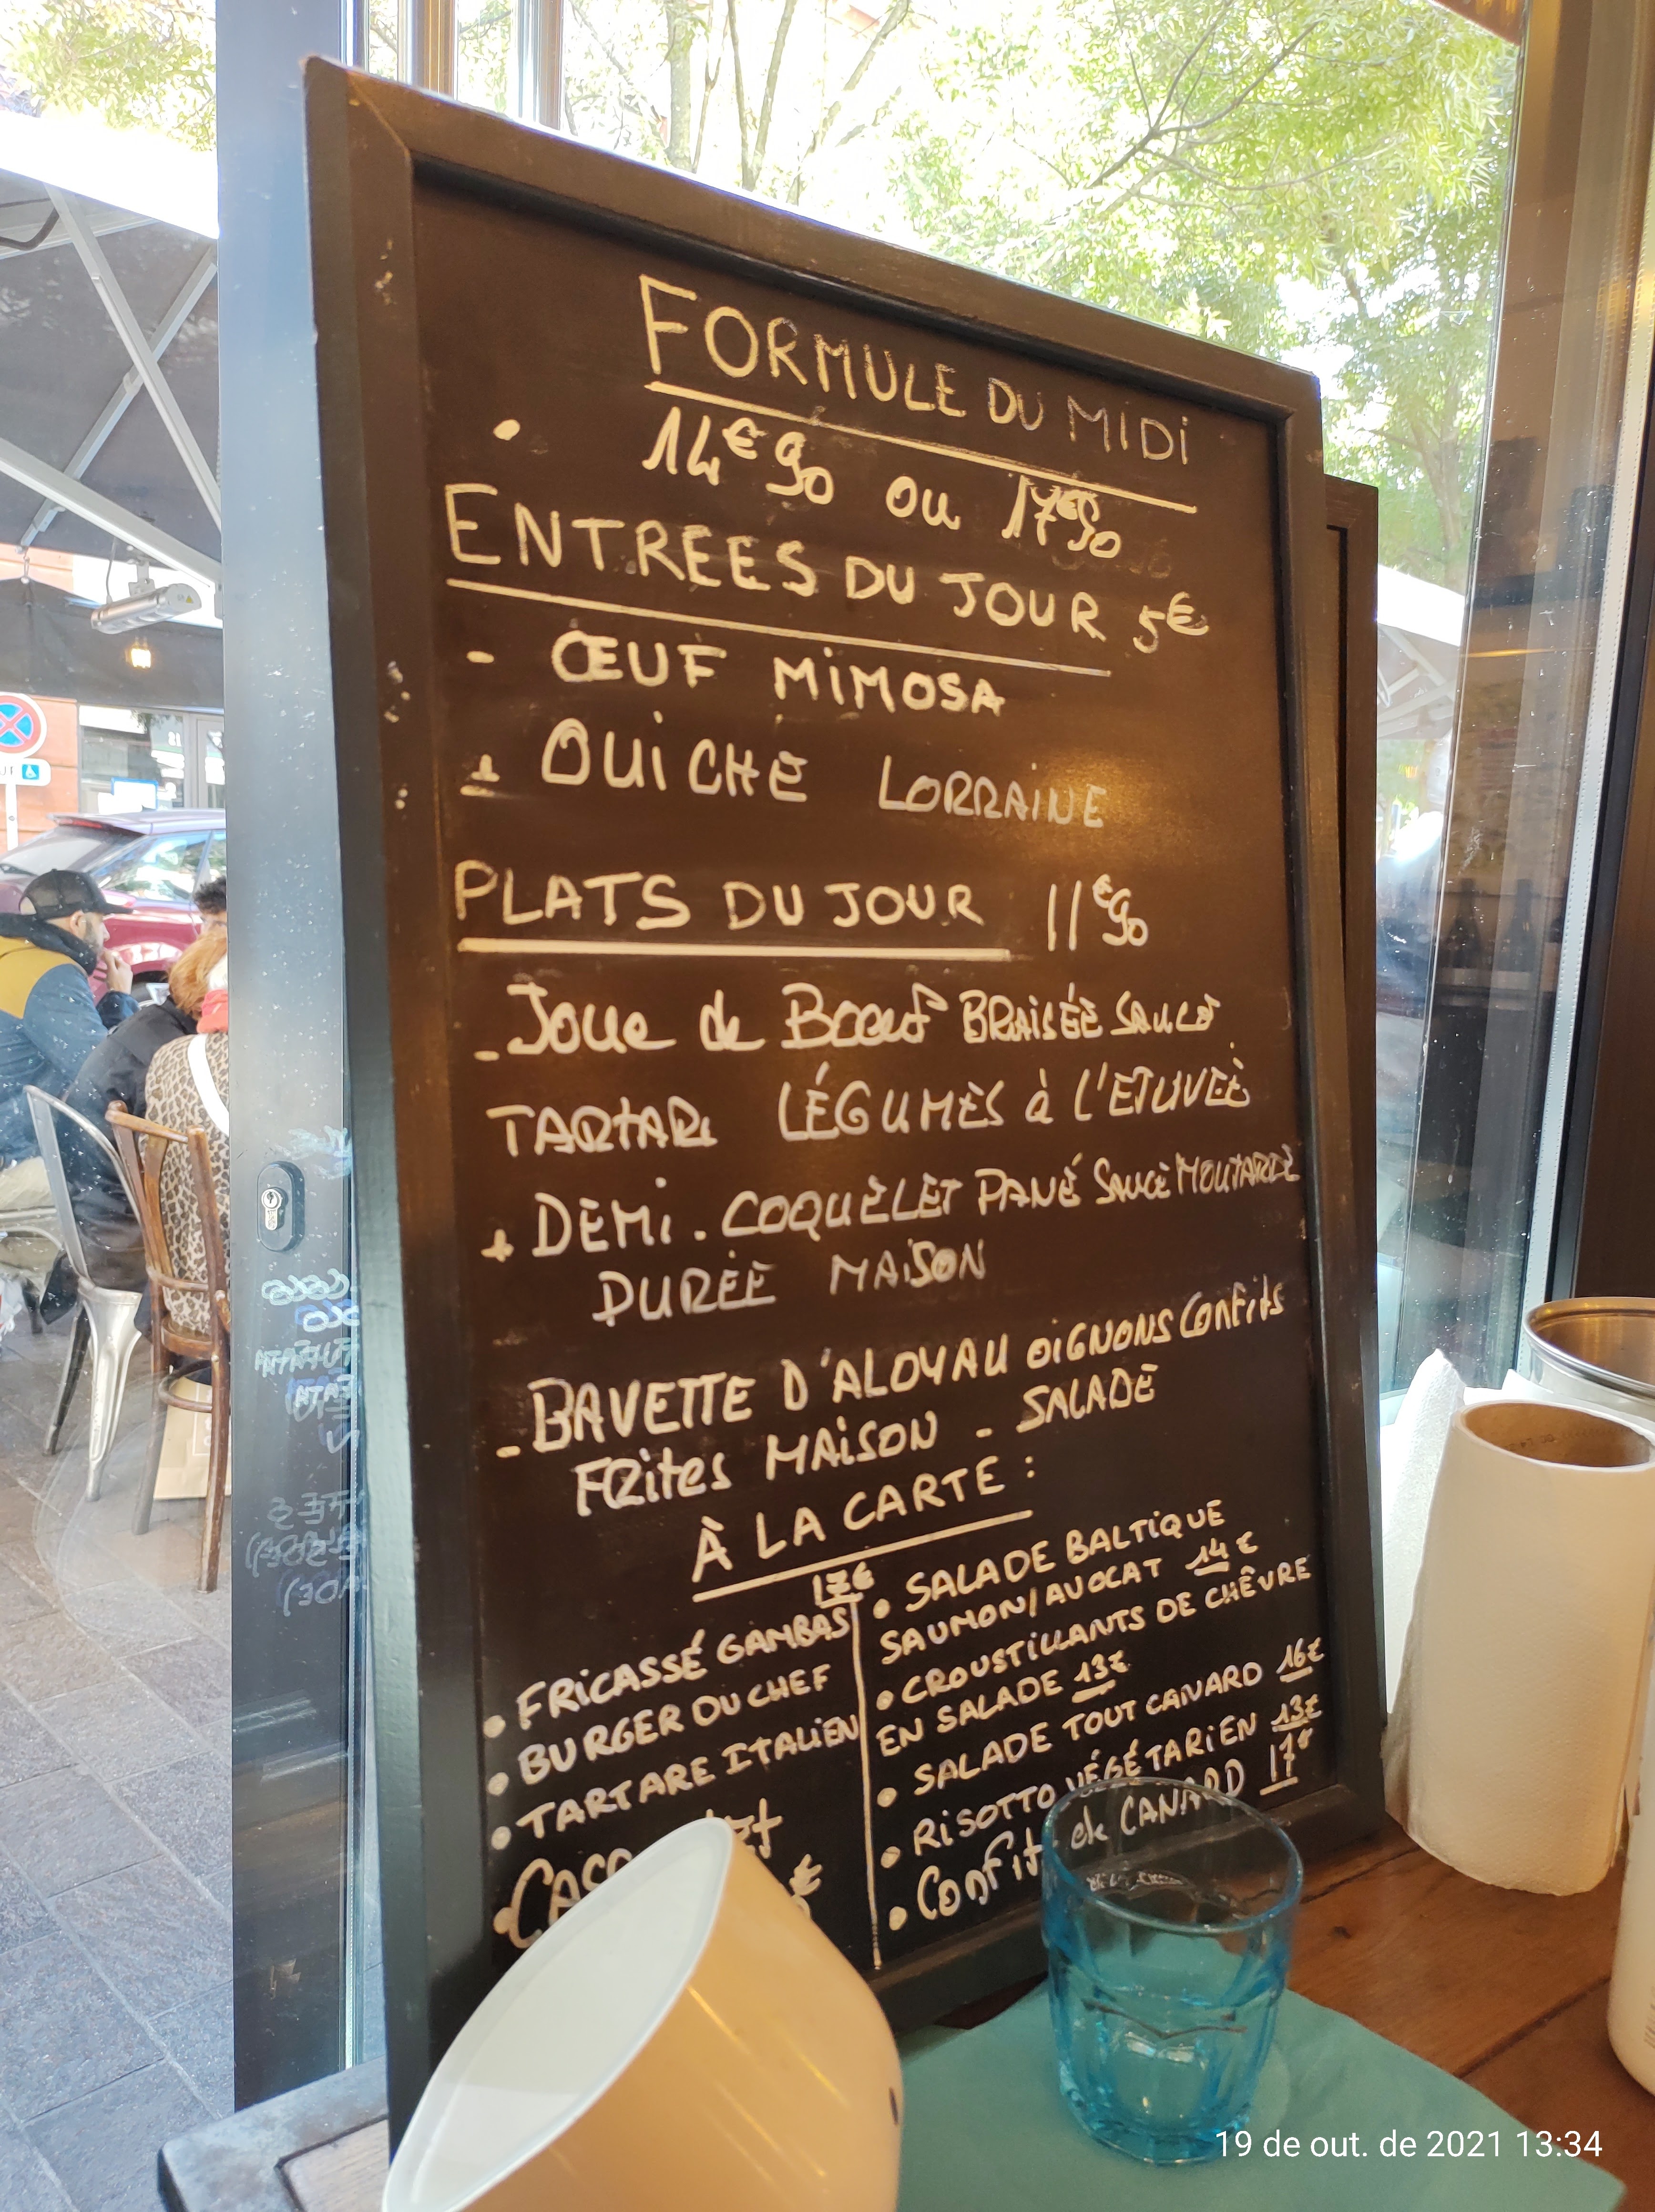 FORMULE DU MIDI
14€90 ou 17€90
ENTREES DU JOUR 5€
- ŒUF MIMOSA
OUICHE LORRAINE
PLATS DU JOUR 11€90
- Joue de Boeuf BRAISÉE SAUCE
TARTARE LÉGUMES à L'ETUVEÈ
+ DEMI. COQUELET PANÉ SAUCE MOUTARDE
PURÉE MAISON
- BAVETTE D'ALOYAU OIGNONS CONFITS
FRITES MAISON - SALADE
À LA CARTE :
17€
• FRICASSÉ GAMBAS
• BURGER DU CHEF
• TARTARE ITALIEN
• SALADE BALTIQUE
SAUMON/AVOCAT 14€
• CROUSTILLANTS DE CHÊVRE
EN SALADE 13€
• SALADE TOUT CANARD 16€
• RISOTTO VÉGÉTARIEN 13€
• Confit de CANARD 17€
19 de out. de 2021 13:34